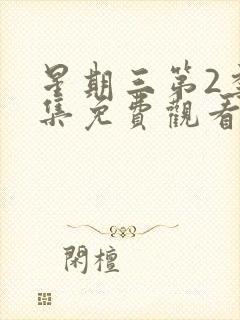 星期三第2季
集免費觀看
閑檀